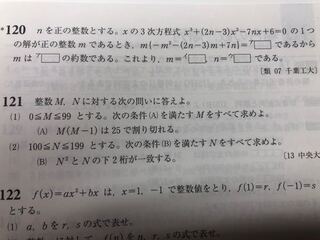 *120 nを正の整数とする。xの3次方程式 x³+(2n-3)x²-7nx+6=0 の1つ
の解が正の整数mであるとき，m{-m²-(2n-3)m+7n}=ア□であるから
mはア□の約数である。これより，m=イ□，n=ウ□である。
[類 07 千葉工大]
121 整数M，Nに対する次の問いに答えよ。
(1) 0≦M≦99とする。次の条件(A)を満たすMをすべて求めよ。
(A) M(M-1)は25で割り切れる。
(2) 100≦N≦199とする。次の条件(B)を満たすNをすべて求めよ。
(B) N²とNの下2桁が一致する。
[13 中央大
122 f(x)=ax³+bx は，x=1，-1で整数値をとり，f(1)=r，f(-1)=s
とする。
(1) a，bをr，sの式で表せ。